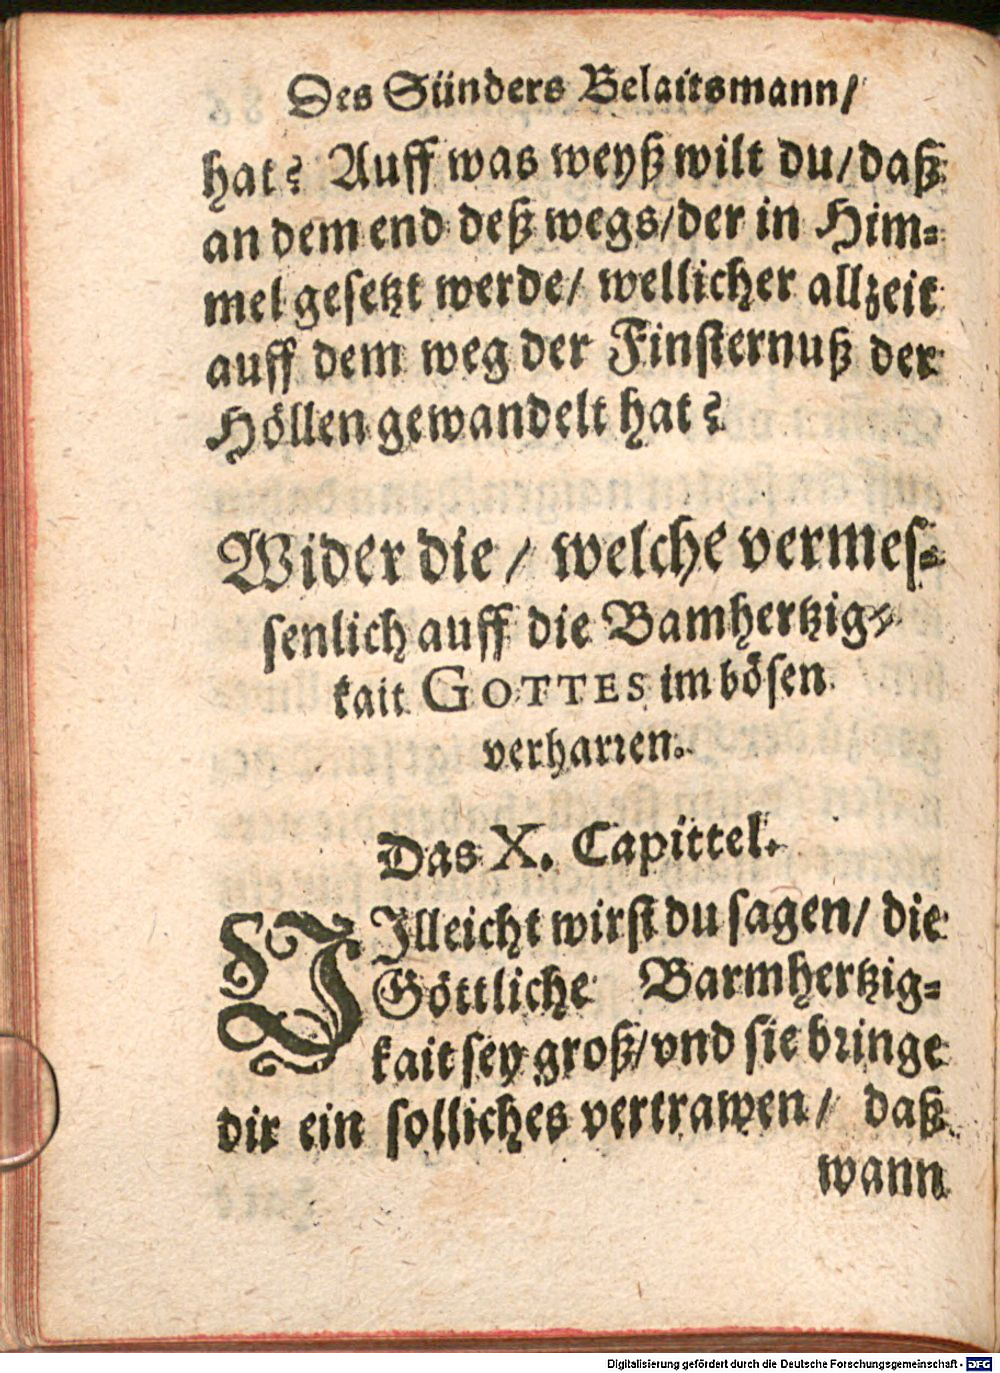 Des Sünders Belaitsmann/
hat? Auff was weyß wilt du/daß
an dem end deß wegs/der in Him⸗
mel gesetzt werde/ wellicher allzeit
auff dem weg der Finsternuß der
Höllen gewandelt hat?
Wider die/ welche vermes⸗
senlich auff die Bamhertzig⸗
kait GOTTES im bösen
verharren.
Das X. Capittel.
VIlleicht wirst du sagen/ die
Göttliche Barmhertzig⸗
kait sey groß/vnd sie bringe
dir ein solliches vertrawen/ daß
wann
Digitalisierung gefördert durch die Deutsche Forschungsgemeinschaft - DFG